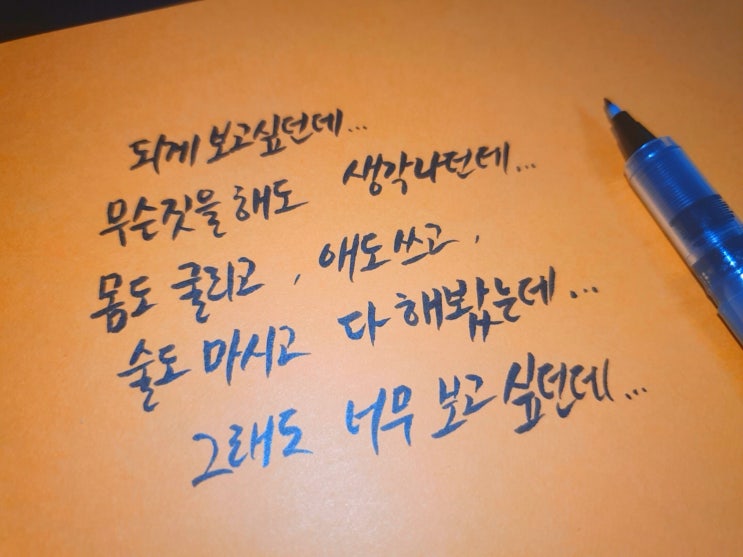 되게 보고싶던데...
무슨짓을 해도 생각나던데...
몸도 굴리고, 애도 쓰고,
술도 마시고 다 해봤는데...
그래도 너무 보고싶던데...